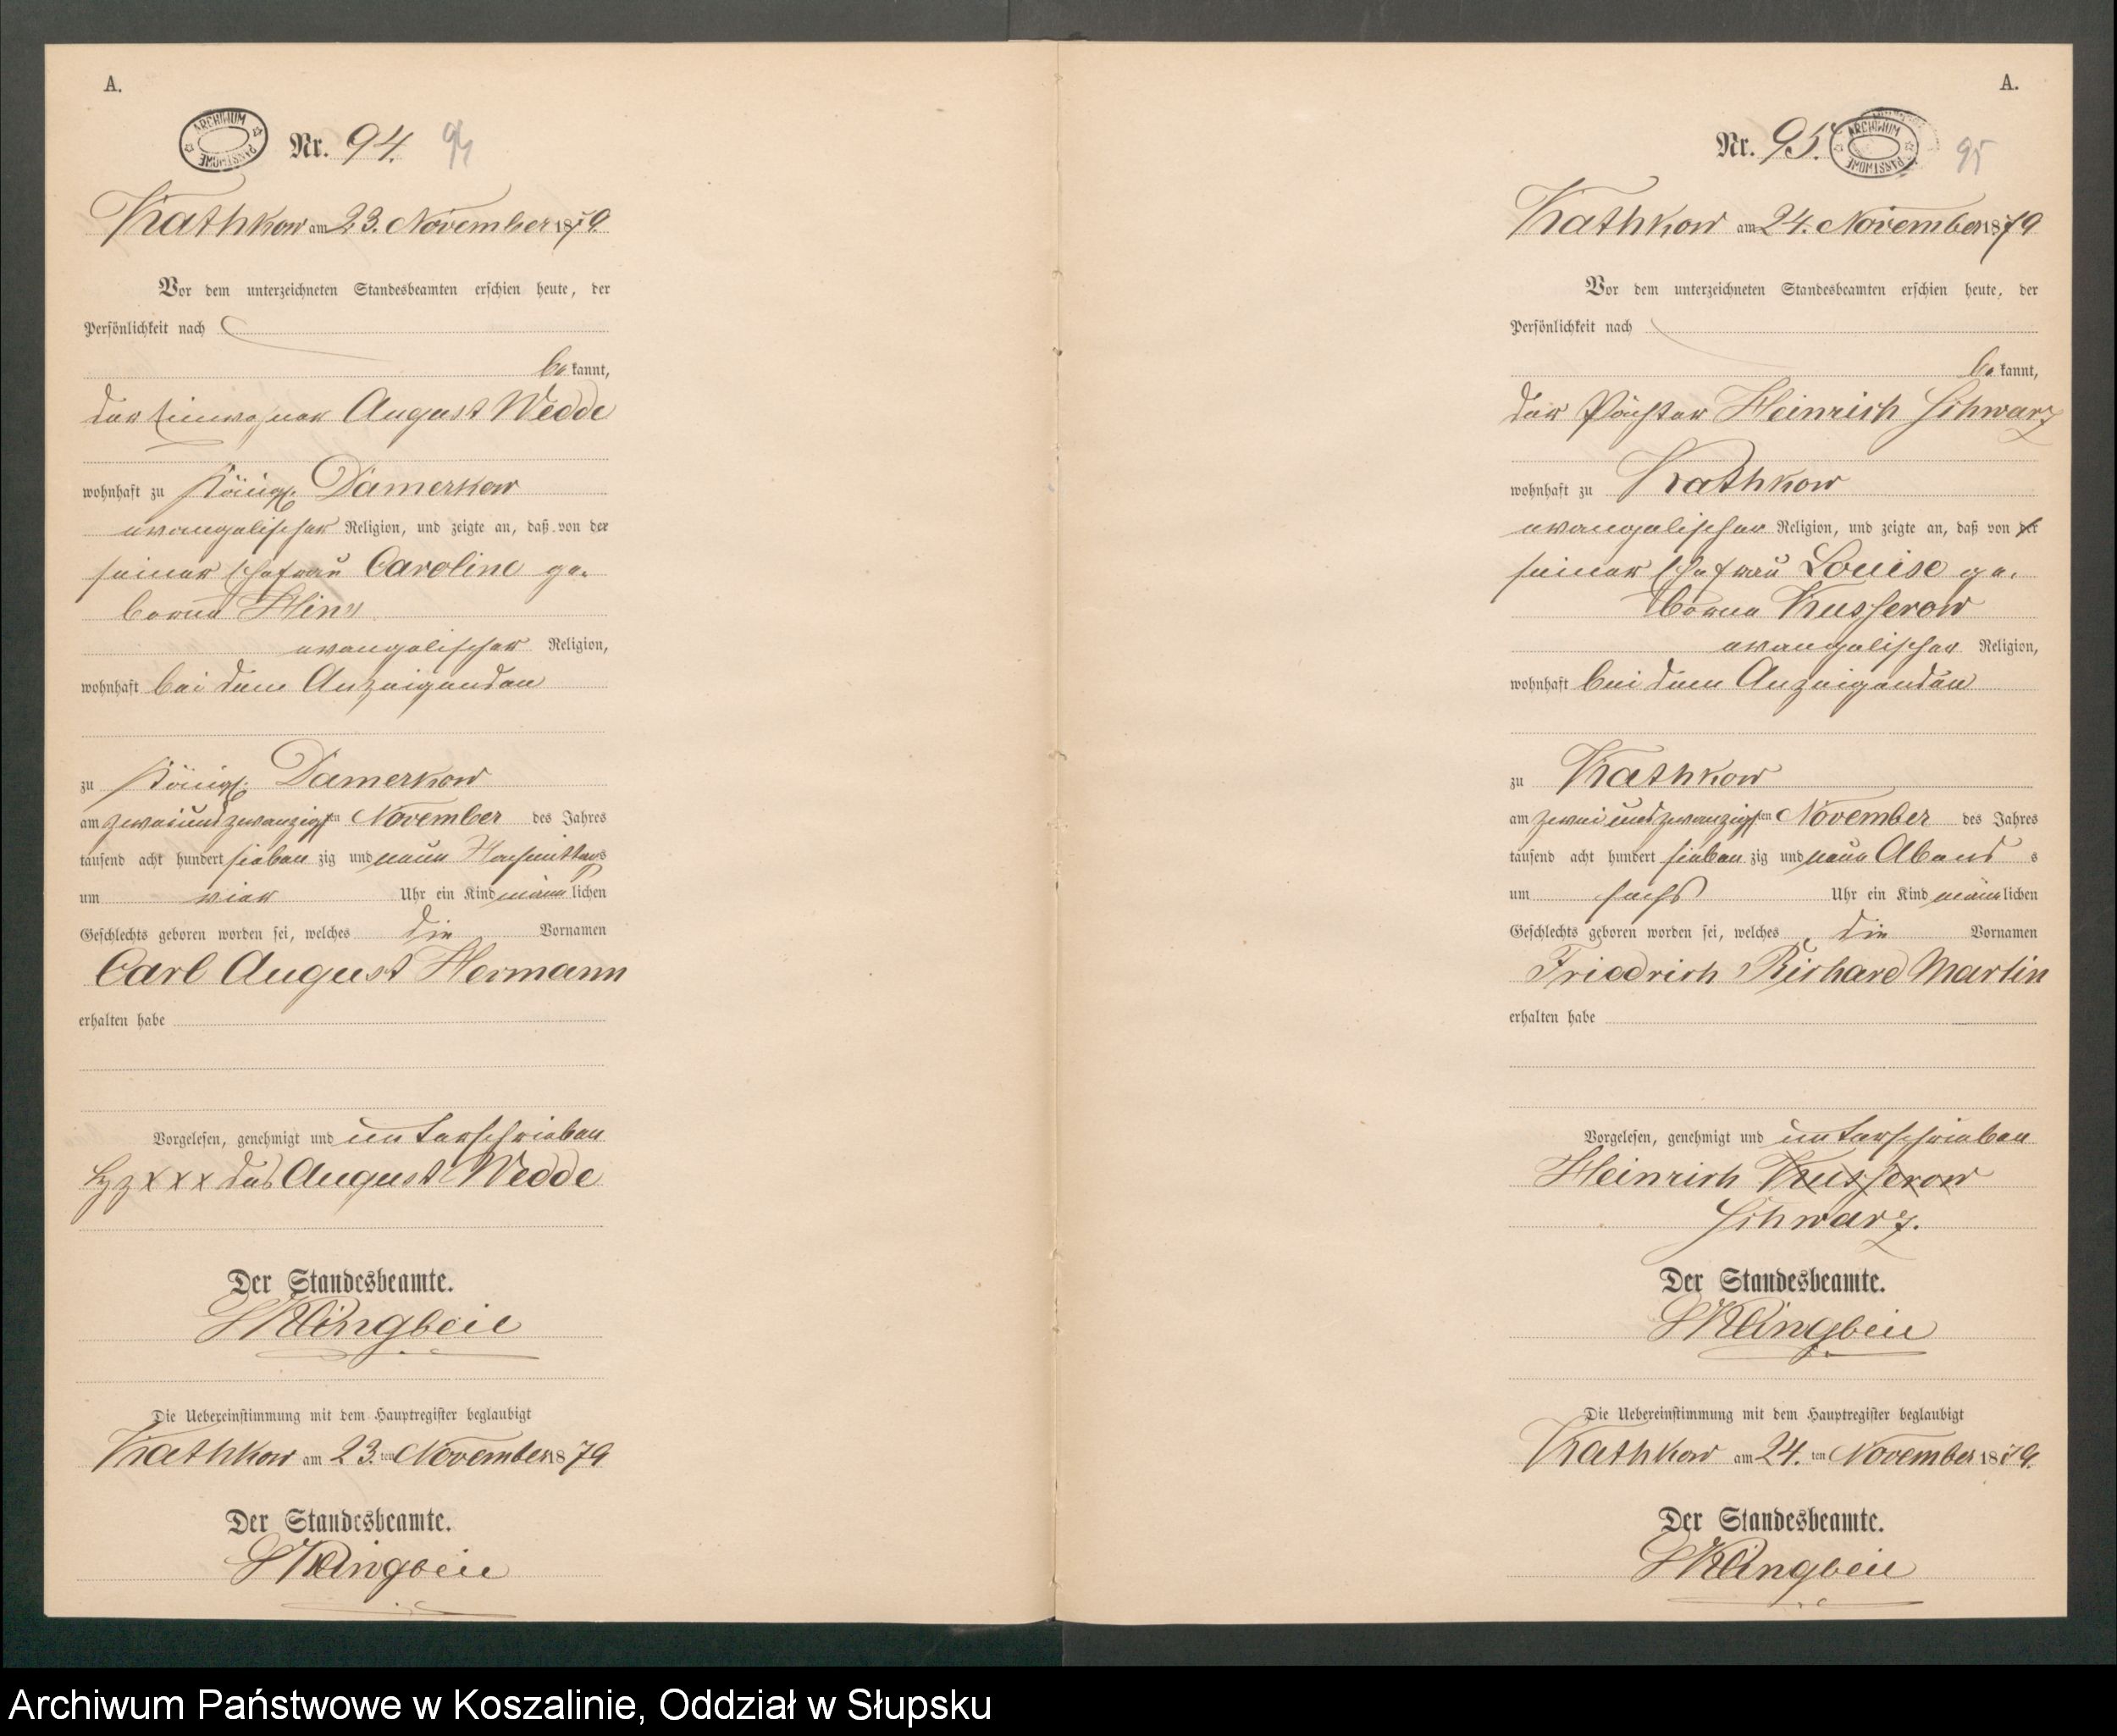 A.
ARCHIWUM PAŃSTWOWE
Nr. 94. 94
Kathkow am 23. November 1879.
Vor dem unterzeichneten Standesbeamten erschien heute, der
Persönlichkeit nach
be kannt,
der Einwohner August Wedde
wohnhaft zu Königl. Damerkow
evangelischer Religion, und zeigte an, daß von der
seiner Ehefrau Caroline ge-
borne Hinz
evangelischer Religion,
wohnhaft bei dem Anzeigenden
zu Königl. Damerkow
am zweiundzwanzigsten November des Jahres
tausend acht hundert sieben zig und neun Nachmittags
um vier Uhr ein Kind männ lichen
Geschlechts geboren worden sei, welches die Vornamen
Carl August Hermann
erhalten habe
Vorgelesen, genehmigt und unterschrieben
Hz x x x des August Wedde
Der Standesbeamte.
Klingbeil
Die Uebereinstimmung mit dem Hauptregister beglaubigt
Kathkow am 23. ten November 1879
Der Standesbeamte.
Klingbeil
A.
Nr. 95. ARCHIWUM PAŃSTWOWE 95
Kathkow am 24. November 1879
Vor dem unterzeichneten Standesbeamten erschien heute, der
Persönlichkeit nach
be kannt,
der Pächter Heinrich Schwarz
wohnhaft zu Kathkow
evangelischer Religion, und zeigte an, daß von der
seiner Ehefrau Louise ge-
borne Kusserow
evangelischer Religion,
wohnhaft bei dem Anzeigenden
zu Kathkow
am zwei und zwanzigsten November des Jahres
tausend acht hundert sieben zig und neun Abend s
um sechs Uhr ein Kind männ lichen
Geschlechts geboren worden sei, welches die Vornamen
Friedrich Richard Martin
erhalten habe
Vorgelesen, genehmigt und unterschrieben
Heinrich Kusserow
Schwarz.
Der Standesbeamte.
Klingbeil
Die Uebereinstimmung mit dem Hauptregister beglaubigt
Kathkow am 24. ten November 1879.
Der Standesbeamte.
Klingbeil
Archiwum Państwowe w Koszalinie, Oddział w Słupsku